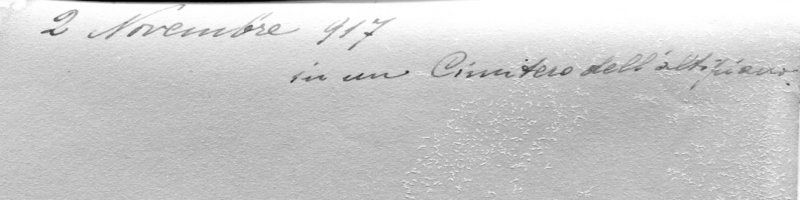 2 Novembre 917
in un Cimitero dell'altipiano.